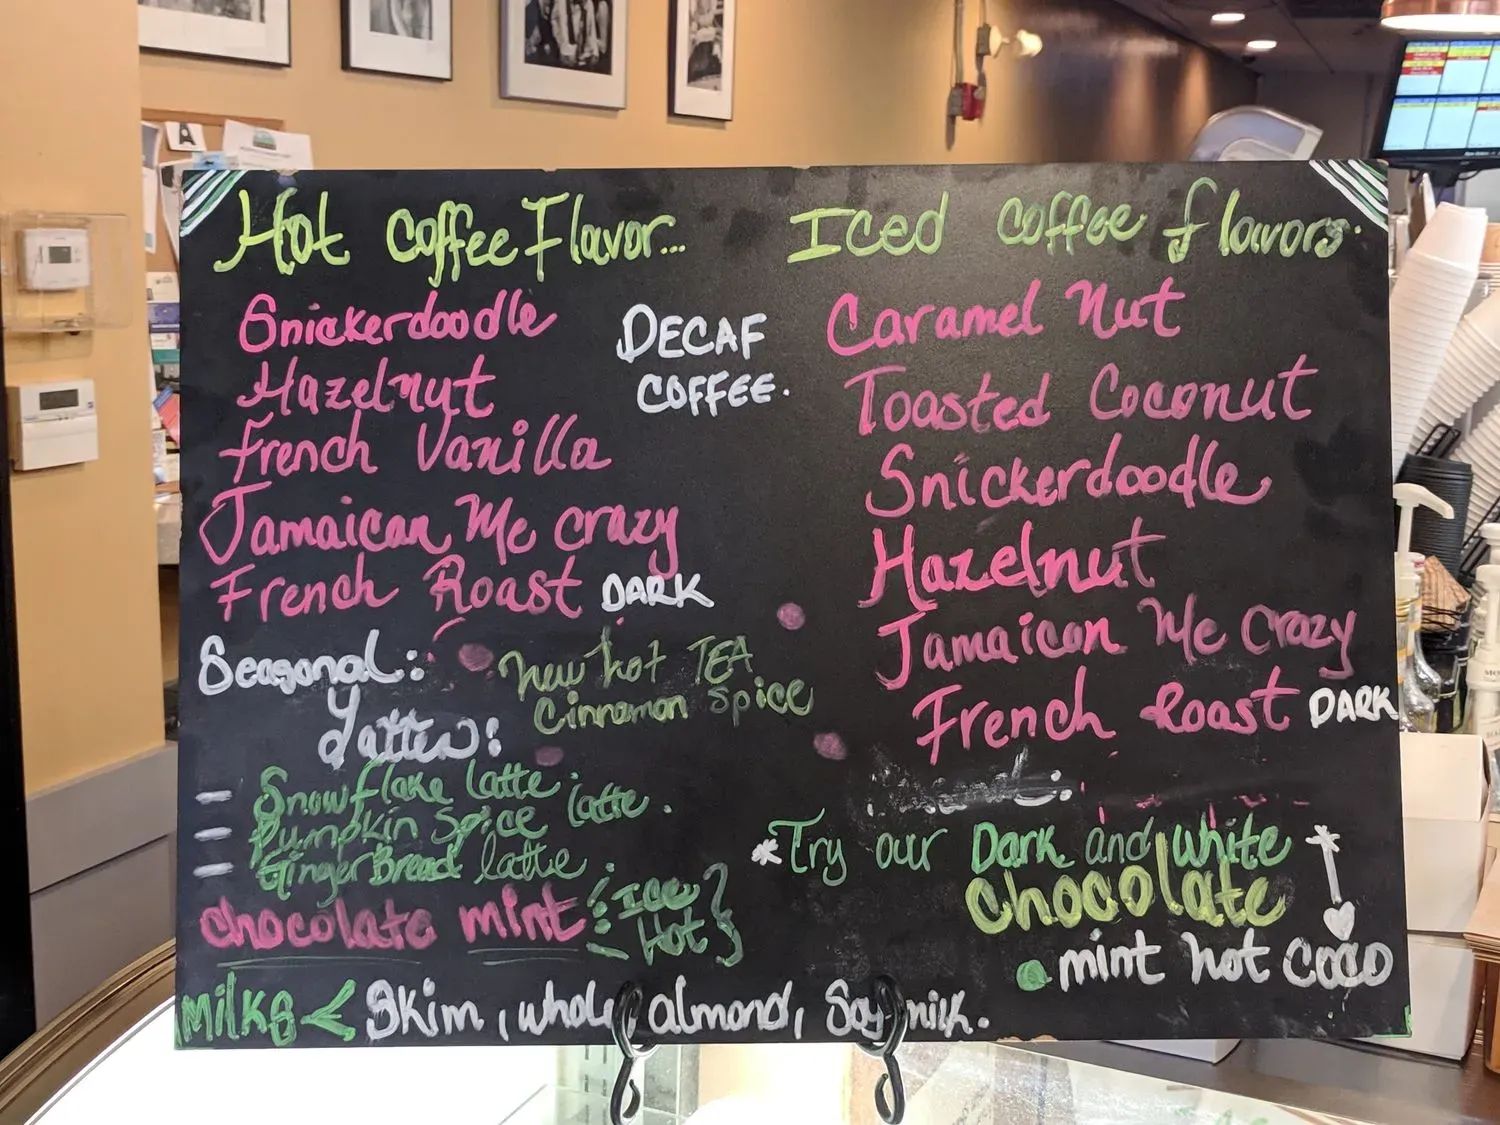 Hot Coffee Flavor...
Snickerdoodle
Hazelnut
French Vanilla
Jamaican Me crazy
French Roast DARK
DECAF
COFFEE.
Seasonal:
Latte's:
New hot TEA
Cinnamon Spice
- Snowflake latte.
- Pumpkin Spice latte.
- GingerBread latte.
chocolate mint {Ice
Hot}
MilKs < Skim, whole, almond, Soy milk.
Iced Coffee flavors.
Caramel Nut
Toasted Coconut
Snickerdoodle
Hazelnut
Jamaican Me Crazy
French Roast DARK
*Try our Dark and white
chocolate
mint hot COCO
A